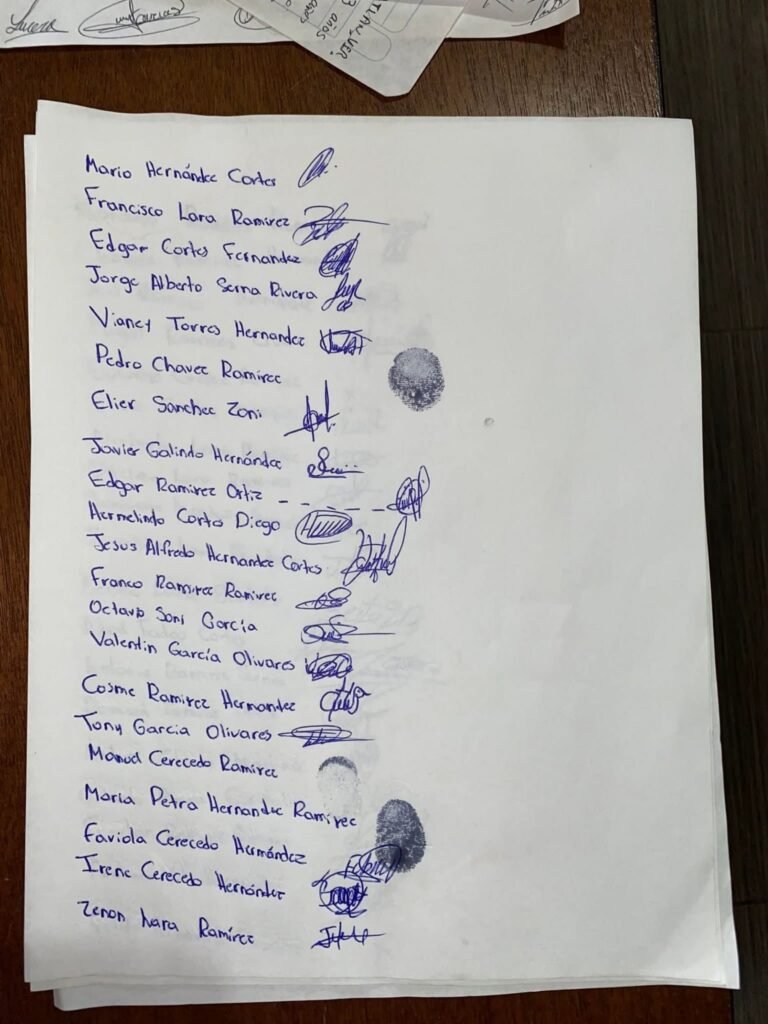 Lucero
3 anos
Mario Hernández Cortes
Francisco Lara Ramirez
Edgar Cortes Fernandez
Jorge Alberto Serna Rivera
Vianey Torres Hernandez
Pedro Chavez Ramirez
Elier Sánchez Zoni
Javier Galindo Hernández
Edgar Ramirez Ortiz
Hermelindo Cortes Diego
Jesus Alfredo Hernandez Cortes
Franco Ramirez Ramirez
Octavio Soni García
Valentin García Olivares
Cosme Ramirez Hernandez
Tony Garcia Olivares
Manuel Cerecedo Ramirez
María Petra Hernandez Ramirez
Faviola Cerecedo Hernández
Irene Cerecedo Hernández
Zenon Lara Ramírez